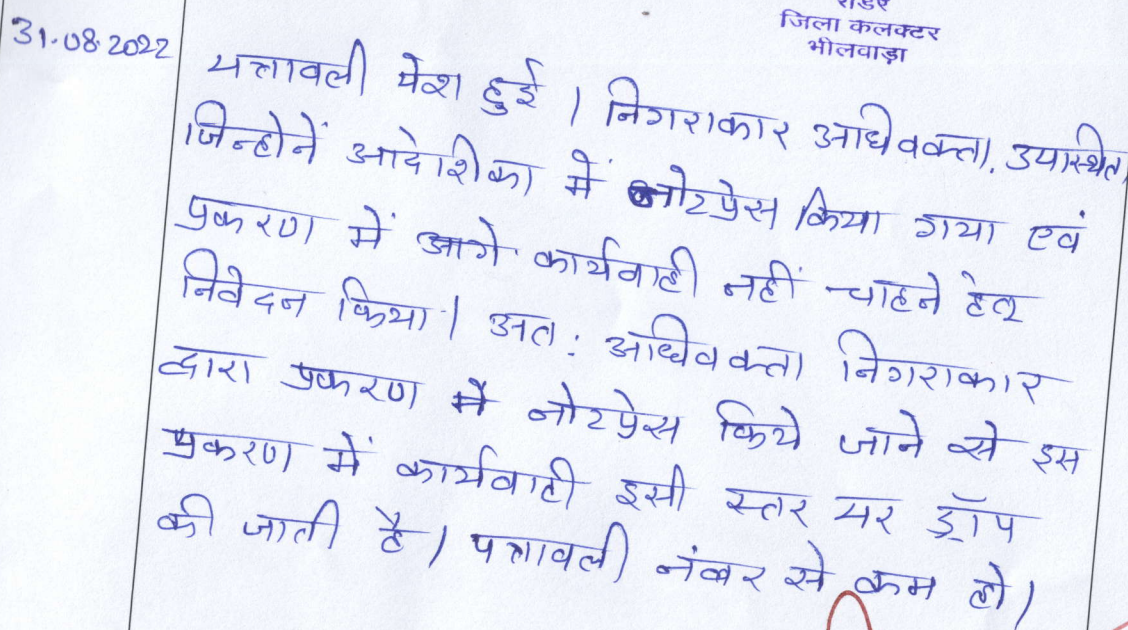 रीडर
जिला कलक्टर
भीलवाड़ा
31.08.2022
पत्रावली पेश हुई । निगराकार अधिवक्ता उपस्थित
जिन्होनें आदेशिका में नोटप्रेस किया गया एवं
प्रकरण में आगे कार्यवाही नहीं चाहने हेतू
निवेदन किया । अत: अधिवक्ता निगराकार
द्वारा प्रकरण में नोटप्रेस किये जाने से इस
प्रकरण में कार्यवाही इसी स्तर पर ड्रॉप
की जाती है । पत्रावली नंबर से कम हो ।